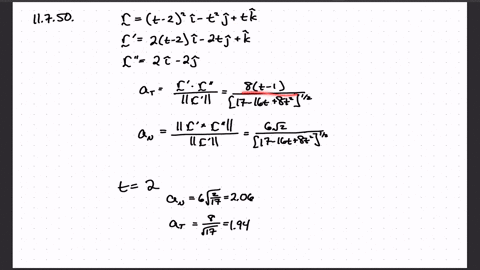 11.7.50. r = (t-2)² î - t² ĵ + t k̂
r' = 2(t-2) î - 2t ĵ + k̂
r'' = 2 î - 2 ĵ
a_T = r' · r'' / ||r'|| = 8(t-1) / [17-16t+8t²]^1/2
a_N = ||r' × r''|| / ||r'|| = 6√2 / [17-16t+8t²]^1/2
t = 2
a_N = 6√(2/17) = 2.06
a_T = 8/√17 = 1.94